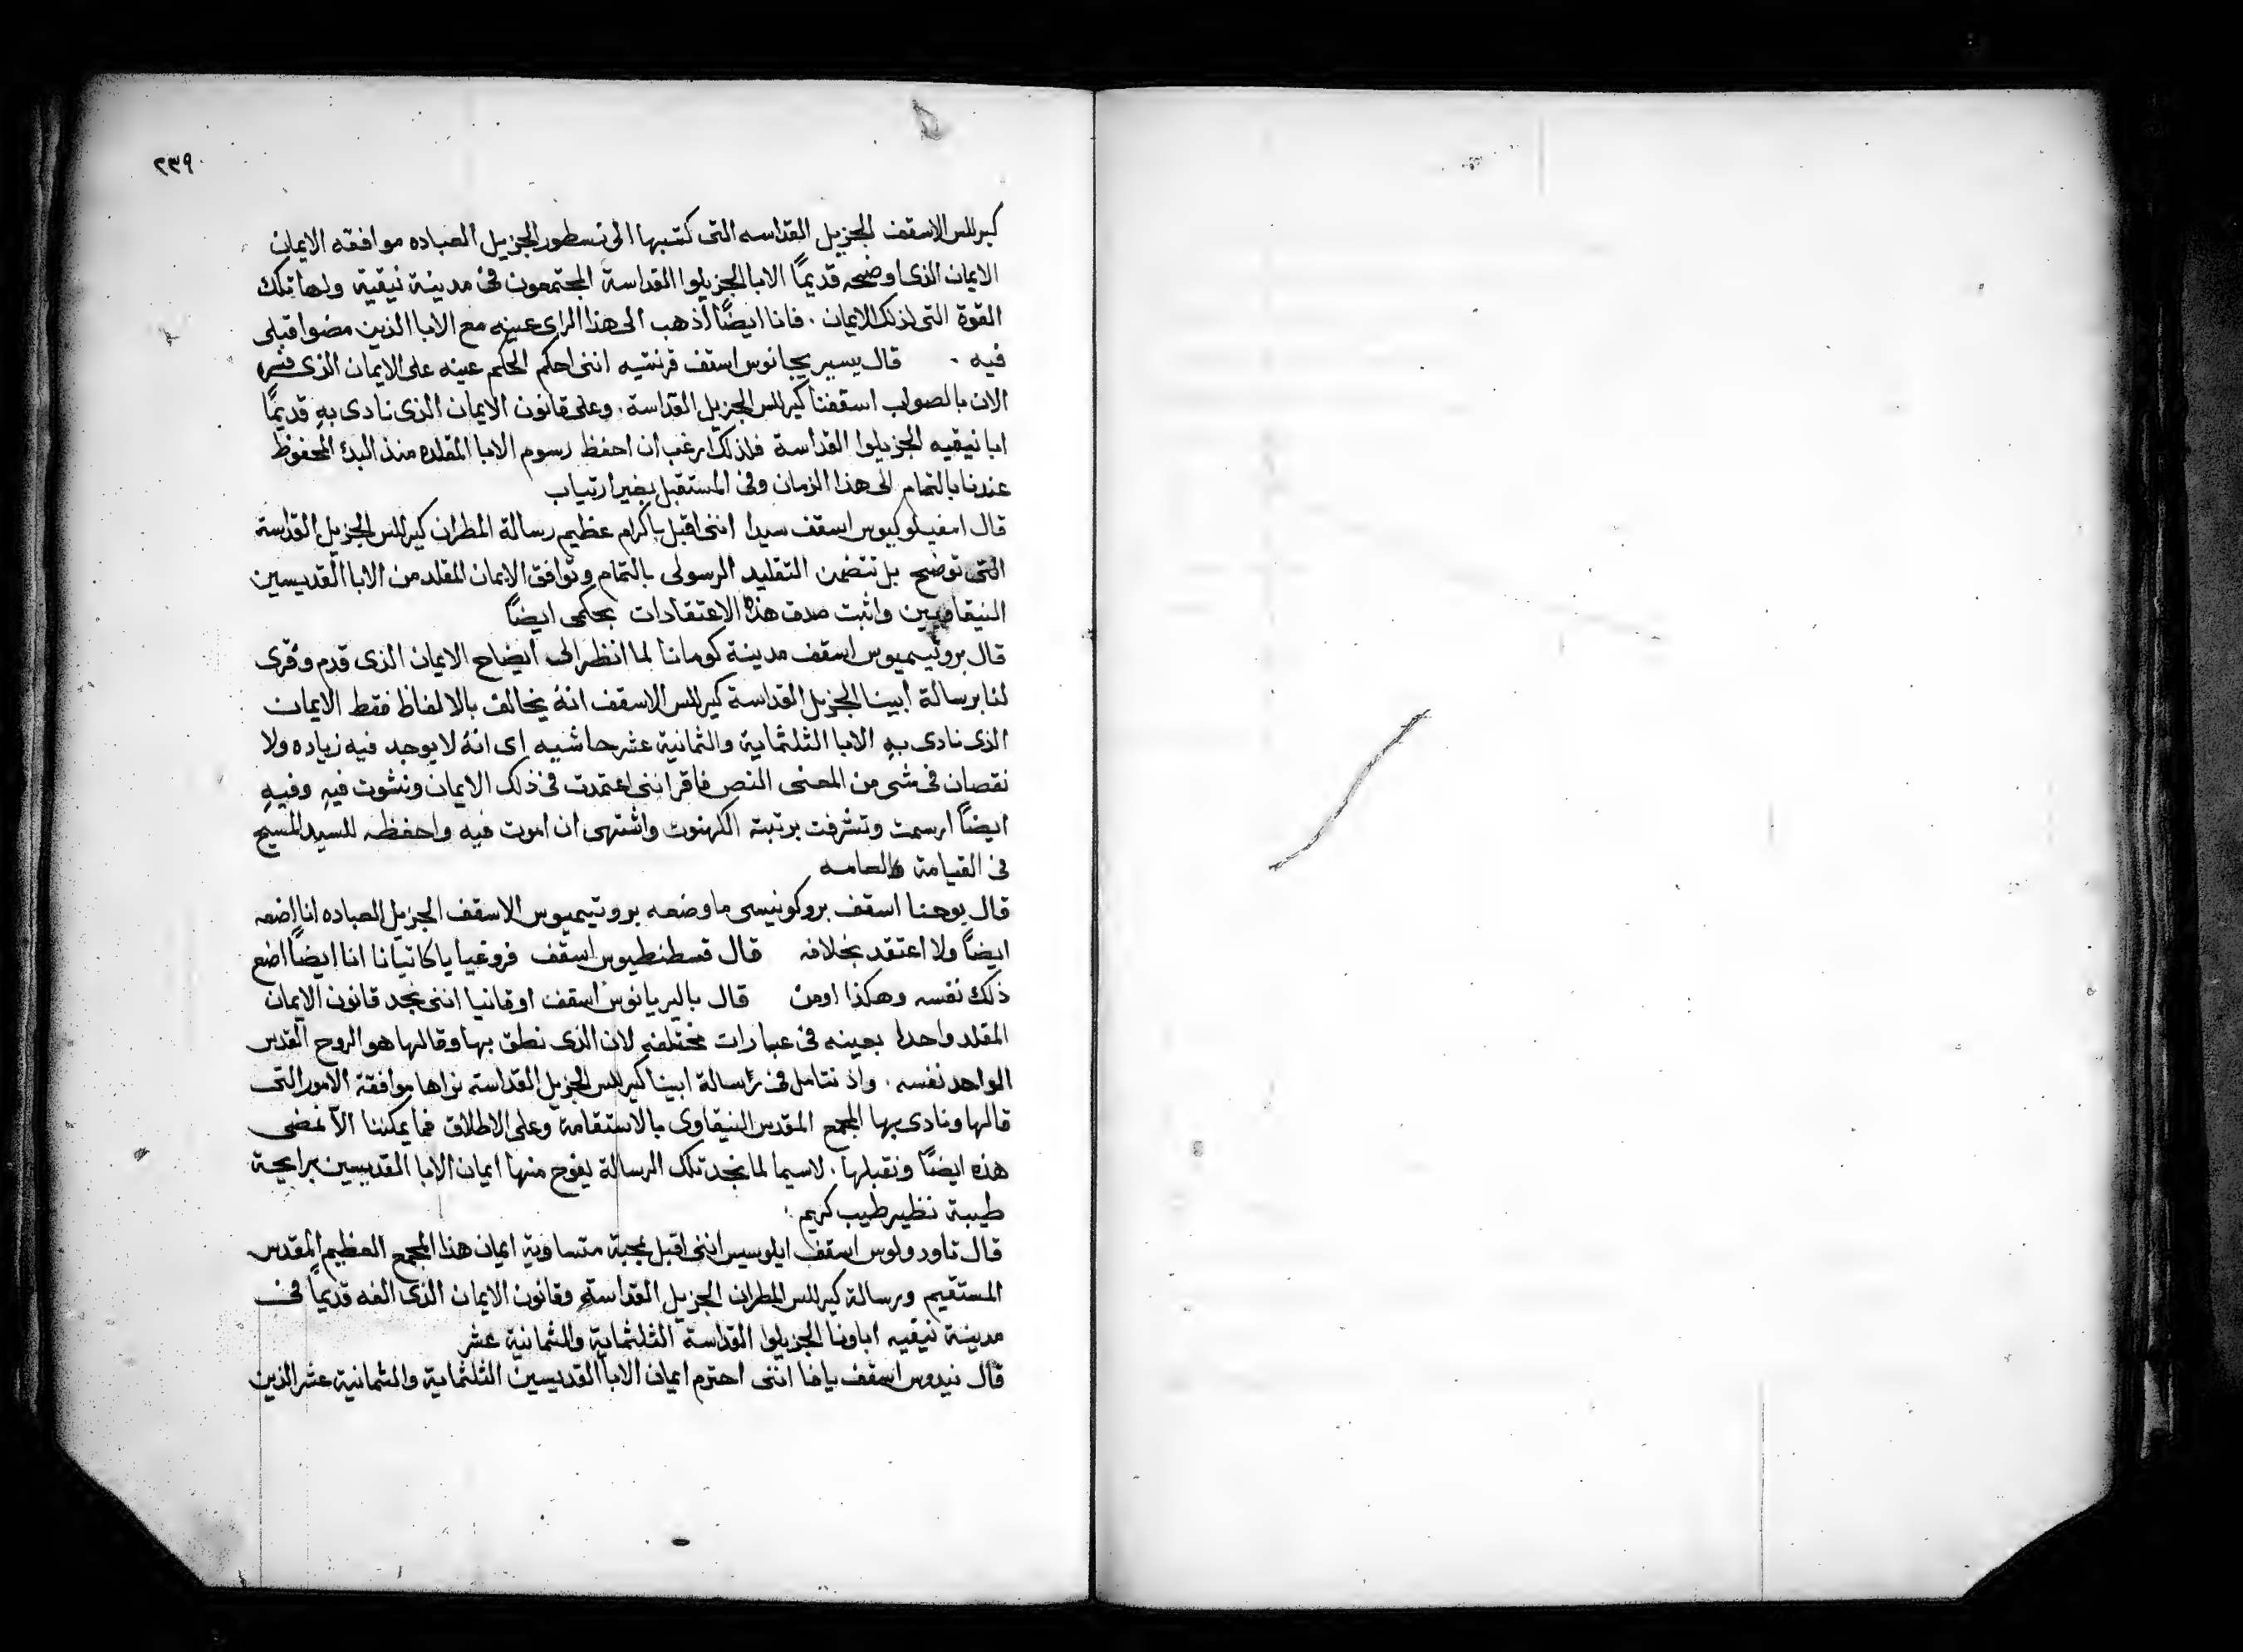 ٢٣٩
كيرللس الاسقف الجزيل القداسه التى كتبها الى نسطور الجزيل العباده موافقه الايمان
الايمان الذى اوضحه قديمًا الابا الجزيلوا القداسة المجتمعون فى مدينة نيقية ولها تلك
القوة التى لذلك الايمان . فانا ايضًا اذهب الى هذا الراى عينه مع الابا الذين مضوا قبلى
فيه . قال بيبريجيانوس اسقف قرنتيه اننى احكم الحكم عينه على الايمان الذى فسره
الان بالصواب اسقفنا كيرللس الجزيل القداسة . وعلى قانون الايمان الذى نادى بهِ قديمًا
ابا نيقيه الجزيلوا القداسة فلذلك ارغب ان احفظ رسوم الابا المقلده منذ البدء المحفوظ
عندنا بالتمام الى هذا الزمان وفى المستقبل بغير ارتياب
قال امفيلوكيوس اسقف سيدا اننى اقبل باكرام عظيم رسالة المطران كيرللس الجزيل القداسة
التى توضح بل تتضمن التقليد الرسولى بالتمام وتوافق الايمان المقلد من الابا القديسين
النيقاويين واثبت صدق هذه الاعتقادات بحكمى ايضًا
قال بروتيميوس اسقف مدينة كومانا لما انظر الى ايضاح الايمان الذى قدم وقرى
لنا برسالة ابينا الجزيل القداسة كيرللس الاسقف انهُ يخالف بالالفاظ فقط الايمان
الذى نادى بهِ الابا الثلثماية والثمانية عشر حاشيه اى انهُ لا يوجد فيه زياده ولا
نقصان فى شى من المعنى النص فاقر اننى اعتمدت فى ذلك الايمان ونشوت فيهِ وفيهِ
ايضًا ارسمت وتشرفت برتبة الكهنوت واشتهى ان اموت فيه واحفظه للسيد المسيح
فى القيامة العامه
قال يوحنا اسقف بروكونيسى ما وضعه بروتيميوس الاسقف الجزيل العباده انا اضعه
ايضًا ولا اعتقد بخلافه قال قسطنطيوس اسقف فروغيا باكاتيانا انا ايضًا اضع
ذلك نفسه وهكذا اومن قال باليريانوس اسقف اوقانيا اننى نجد قانون الايمان
المقلد واحدا بعينه فى عبارات مختلفه لان الذى نطق بها وقالها هو الروح القدس
الواحد نفسه . واذ نتامل فى رسالة ابينا كيرللس الجزيل القداسة نراها موافقة الامور التى
قالها ونادى بها المجمع المقدس النيقاوى بالاستقامة وعلى الاطلاق فما يمكننا الا نمضى
هذه ايضًا ونقبلها . لاسيما لما نجد تلك الرسالة يفوح منها ايمان الابا القديسين برايحة
طيبة نظير طيب كريم .
قال تاودولوس اسقف ايلوسيس اننى اقبل بمحبة متساوية ايمان هذا المجمع العظيم المقدس
المستقيم ورسالة كيرللس المطران الجزيل القداسة وقانون الايمان الذى الفه قديمًا فى
مدينة نيقيه اباونا الجزيلوا القداسة الثلثماية والثمانية عشر
قال نيدوس اسقف يافا اننى احترم ايمان الابا القديسين الثلثماية والثمانية عشر الذين